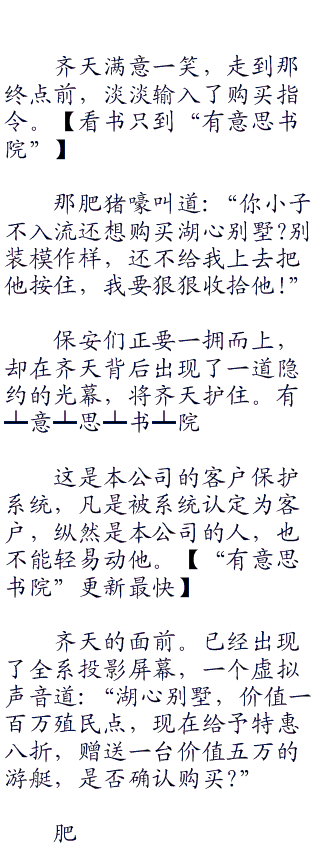 齐天满意一笑，走到那
终点前，淡淡输入了购买指
令。【看书只到“有意思书
院”】
那肥猪嚎叫道：“你小子
不入流还想购买湖心别墅?别
装模作样，还不给我上去把
他按住，我要狠狠收拾他!”
保安们正要一拥而上，
却在齐天背后出现了一道隐
约的光幕，将齐天护住。有
┻意┻思┻书┻院
这是本公司的客户保护
系统，凡是被系统认定为客
户，纵然是本公司的人，也
不能轻易动他。【“有意思
书院”更新最快】
齐天的面前。已经出现
了全系投影屏幕，一个虚拟
声音道：“湖心别墅，价值一
百万殖民点，现在给予特惠
八折，赠送一台价值五万的
游艇，是否确认购买?”
肥